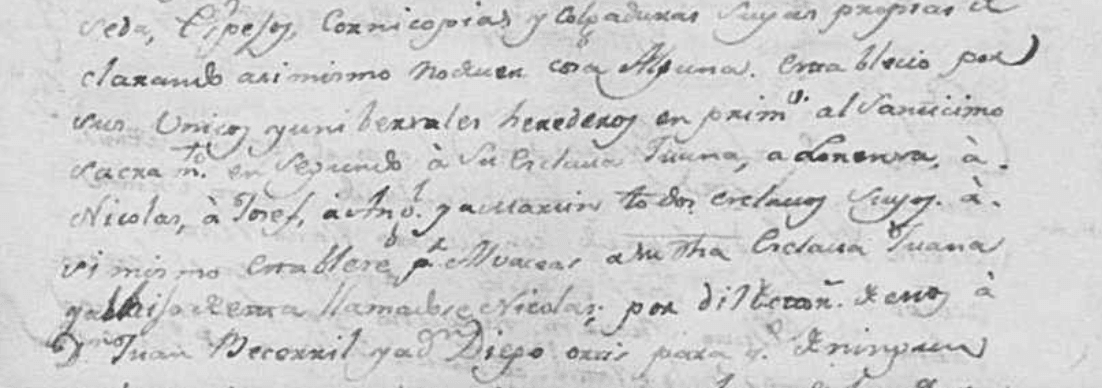 seda, Espejos, Cornicopias, y Colgaduras Suyas propias de
clarando asimismo no dever cosa Alguna. establecio por
sus Unicos y uniberzales herederos en prim.º al Santicimo
sacram.to en Segundo à su Esclava Juana, a Lorenza, à
Nicolas, à Josef, à Ant.º y a Martin todos esclavos suyos. à
si mismo establece p.r Alvaceas a su dha Esclava Juana
y al hijo de esta llamado Nicolas, por direccion. de estos à
D.n Juan Becerril y a D.n Diego Ortis para q.e de ninguna